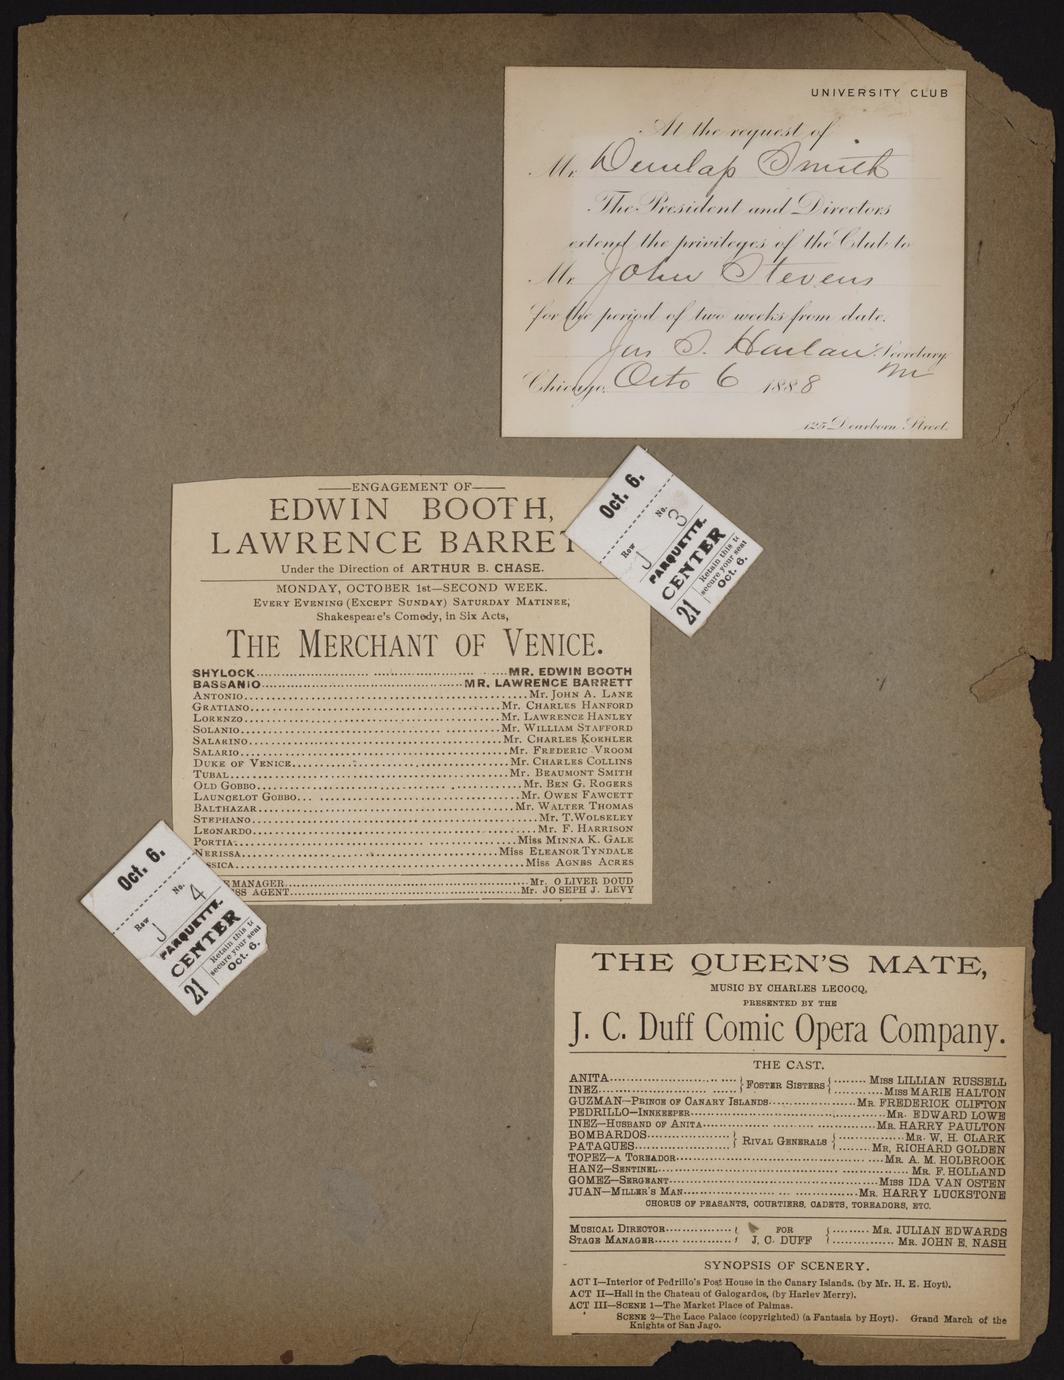 UNIVERSITY CLUB
At the request of
Mr. Dunlap Smith
The President and Directors
extend the privileges of the Club to
Mr. John Stevens
for the period of two weeks from date.
Jas S. Harlan Secretary.
Chicago, Octo 6 1888
125 Dearborn Street.
ENGAGEMENT OF
EDWIN BOOTH,
LAWRENCE BARRET
Under the Direction of ARTHUR B. CHASE.
MONDAY, OCTOBER 1st—SECOND WEEK.
EVERY EVENING (EXCEPT SUNDAY) SATURDAY MATINEE,
Shakespeare's Comedy, in Six Acts,
THE MERCHANT OF VENICE.
SHYLOCK MR. EDWIN BOOTH
BASSANIO MR. LAWRENCE BARRETT
ANTONIO MR. JOHN A. LANE
GRATIANO MR. CHARLES HANFORD
LORENZO MR. LAWRENCE HANLEY
SOLANIO MR. WILLIAM STAFFORD
SALARINO MR. CHARLES KOEHLER
SALARIO MR. FREDERIC VROOM
DUKE OF VENICE MR. CHARLES COLLINS
TUBAL MR. BEAUMONT SMITH
OLD GOBBO MR. BEN G. ROGERS
LAUNCELOT GOBBO MR. OWEN FAWCETT
BALTHAZAR MR. WALTER THOMAS
STEPHANO MR. T. WOLSELEY
LEONARDO MR. F. HARRISON
PORTIA MISS MINNA K. GALE
NERISSA MISS ELEANOR TYNDALE
SSICA MISS AGNES ACRES
E MANAGER MR. OLIVER DOUD
SS AGENT MR. JOSEPH J. LEVY
Oct. 6.
Row J No. 3
PARQUETTE.
CENTER
21 Retain this
secure your seat
Oct. 6.
Oct. 6.
Row J No. 4
PARQUETTE.
CENTER
21 Retain this
secure your seat
Oct. 6.
THE QUEEN'S MATE,
MUSIC BY CHARLES LECOCQ,
PRESENTED BY THE
J. C. Duff Comic Opera Company.
THE CAST.
ANITA } FOSTER SISTERS { MISS LILLIAN RUSSELL
INEZ MISS MARIE HALTON
GUZMAN—PRINCE OF CANARY ISLANDS MR. FREDERICK CLIFTON
PEDRILLO—INNKEEPER MR. EDWARD LOWE
INEZ—HUSBAND OF ANITA MR. HARRY PAULTON
BOMBARDOS } RIVAL GENERALS { MR. W. H. CLARK
PATAQUES MR. RICHARD GOLDEN
TOPEZ—A TOREADOR MR. A. M. HOLBROOK
HANZ—SENTINEL MR. F. HOLLAND
GOMEZ—SERGEANT MISS IDA VAN OSTEN
JUAN—MILLER'S MAN MR. HARRY LUCKSTONE
CHORUS OF PEASANTS, COURTIERS, CADETS, TOREADORS, ETC.
MUSICAL DIRECTOR { FOR { MR. JULIAN EDWARDS
STAGE MANAGER J. C. DUFF MR. JOHN E. NASH
SYNOPSIS OF SCENERY.
ACT I—Interior of Pedrillo's Post House in the Canary Islands. (by Mr. H. E. Hoyt).
ACT II—Hall in the Chateau of Galogardos, (by Harley Merry).
ACT III—SCENE 1—The Market Place of Palmas.
SCENE 2—The Lace Palace (copyrighted) (a Fantasia by Hoyt). Grand March of the
Knights of San Jago.